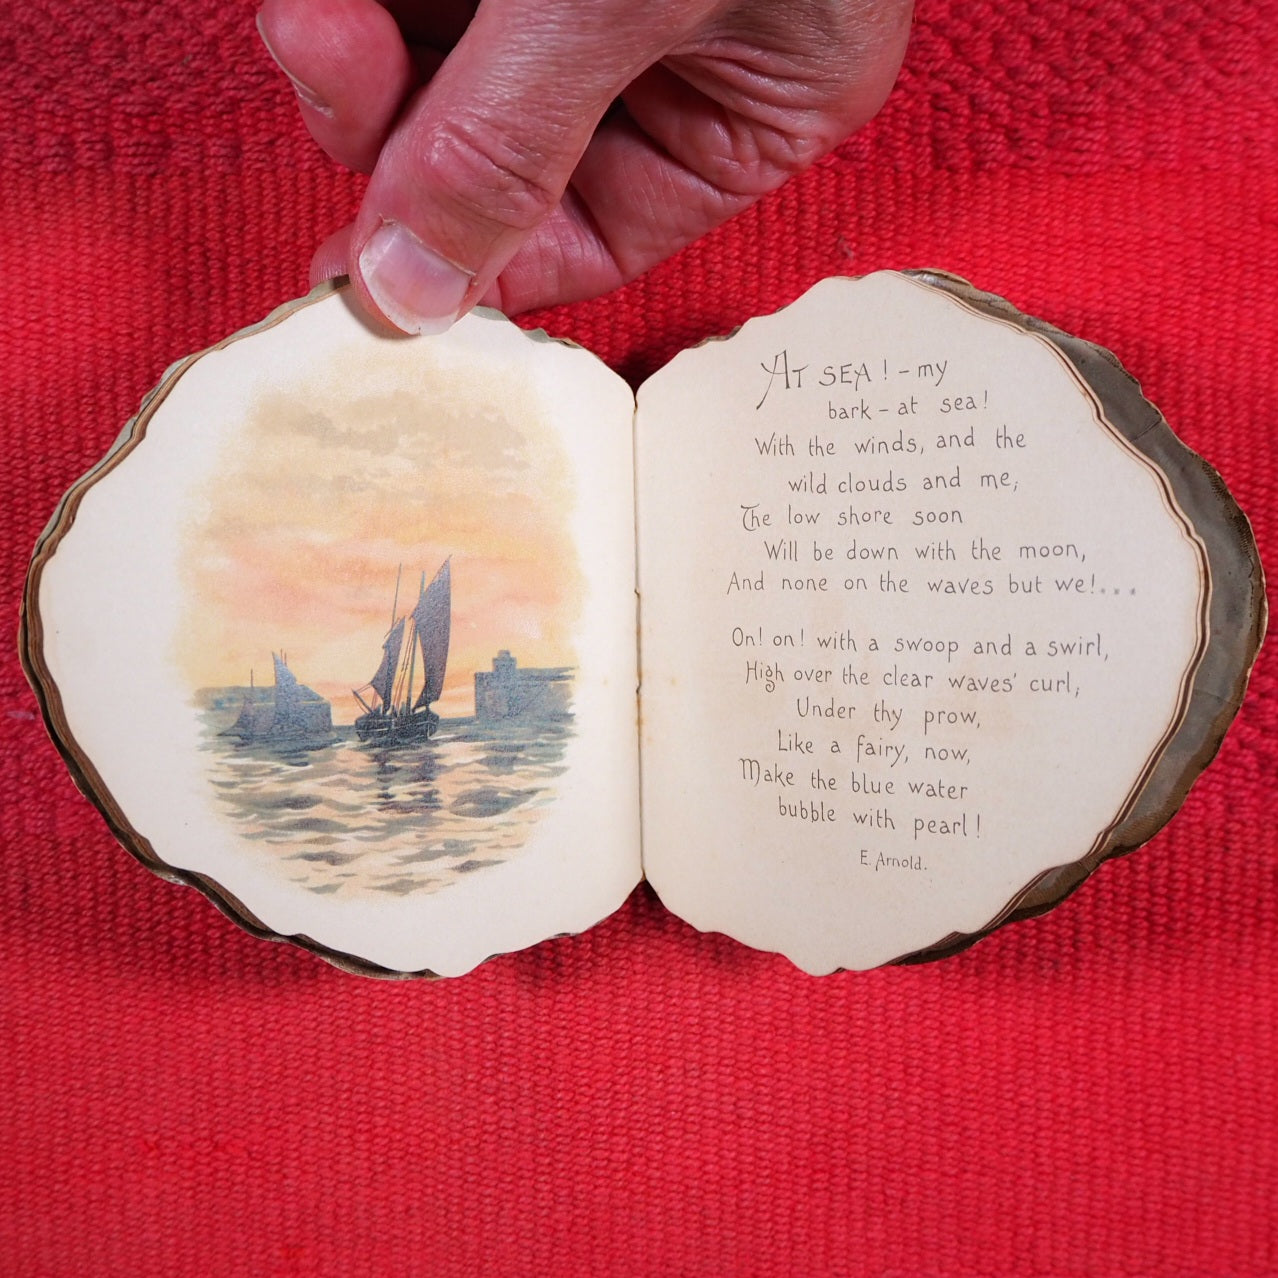 At SEA! – my
bark – at sea!
With the winds, and the
wild clouds and me;
The low shore soon
Will be down with the moon,
And none on the waves but we!...
On! on! with a swoop and a swirl,
High over the clear waves' curl;
Under thy prow,
Like a fairy, now,
Make the blue water
bubble with pearl!
E. Arnold.